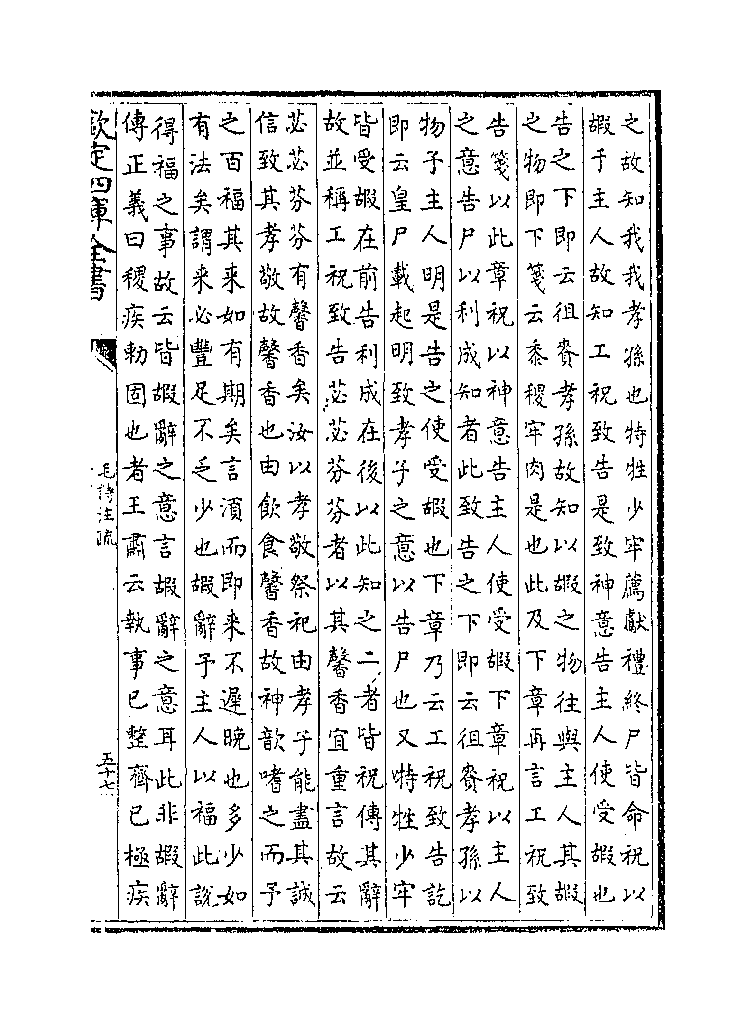 之故知我我孝孫也特牲少牢薦獻禮終尸皆命祝以
嘏于主人故知工祝致告是致神意告主人使受嘏也
告之下即云徂賚孝孫故知以嘏之物往與主人其嘏
之物即下箋云黍稷牢肉是也此及下章再言工祝致
告箋以此章祝以神意告主人使受嘏下章祝以主人
之意告尸以利成知者此致告之下即云徂賚孝孫以
物予主人明是告之使受嘏也下章乃云工祝致告訖
即云皇尸載起明致孝子之意以告尸也又特牲少牢
皆受嘏在前告利成在後以此知之二者皆祝傳其辭
故並稱工祝致告苾苾芬芬者以其馨香宜重言故云
苾苾芬芬有馨香矣汝以孝敬祭祀由孝子能盡其誠
信致其孝敬故馨香也由飲食馨香故神歆嗜之而予
之百福其来如有期矣言湏而即来不遲晚也多少如
有法矣謂来必豐足不乏少也嘏辭予主人以福此説
得福之事故云皆嘏辭之意言嘏辭之意耳此非嘏辭
傳正義曰稷疾勑固也者王肅云執事已整齊已極疾
欽定四庫全書
毛詩注疏
五十七